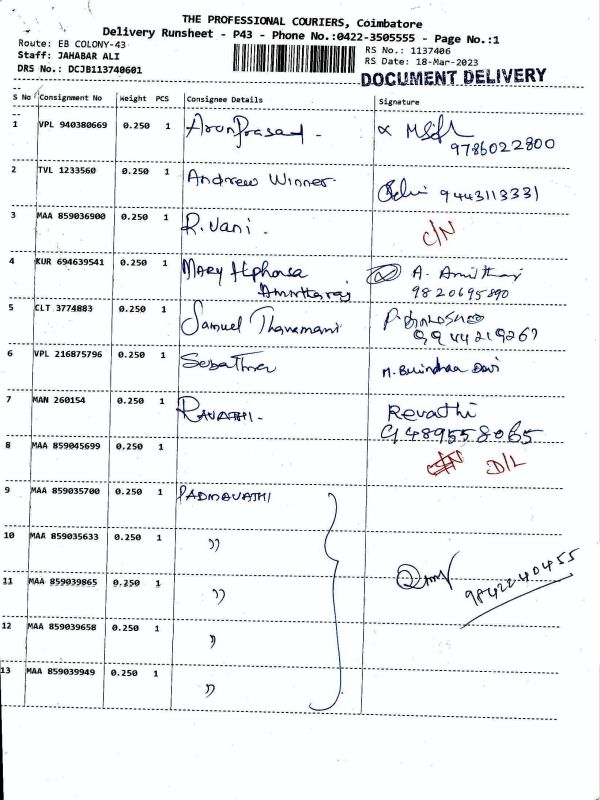 THE PROFESSIONAL COURIERS, Coimbatore
Delivery Runsheet - P43 - Phone No.:0422-3505555 - Page No.:1
Route: EB COLONY-43
Staff: JAHABAR ALI
DRS No.: DCJB113740601
RS No.: 1137406
RS Date: 18-Mar-2023
DOCUMENT DELIVERY
S No Consignment No Weight PCS Consignee Details Signature
1 VPL 940380669 0.250 1 ArunPrasad.
9786022800
2 TVL 1233560 0.250 1 Andrew Winner. 9443113331
3 MAA 859036900 0.250 1 R. Vani. C/N
4 KUR 694639541 0.250 1 Mary Alphonsa A. Amirtharaj
Amirtharaj 9820695890
5 CLT 3774883 0.250 1 Samuel Thanamani
9944219267
6 VPL 216875796 0.250 1 M. Brindaa Devi
7 MAN 260154 0.250 1 RAVATHI. Revathi
9489558065
8 MAA 859045699 0.250 1 D/L
9 MAA 859035700 0.250 1 PADMAVATHI
10 MAA 859035633 0.250 1 〃
11 MAA 859039865 0.250 1 〃 9842240455
12 MAA 859039658 0.250 1 〃
13 MAA 859039949 0.250 1 〃